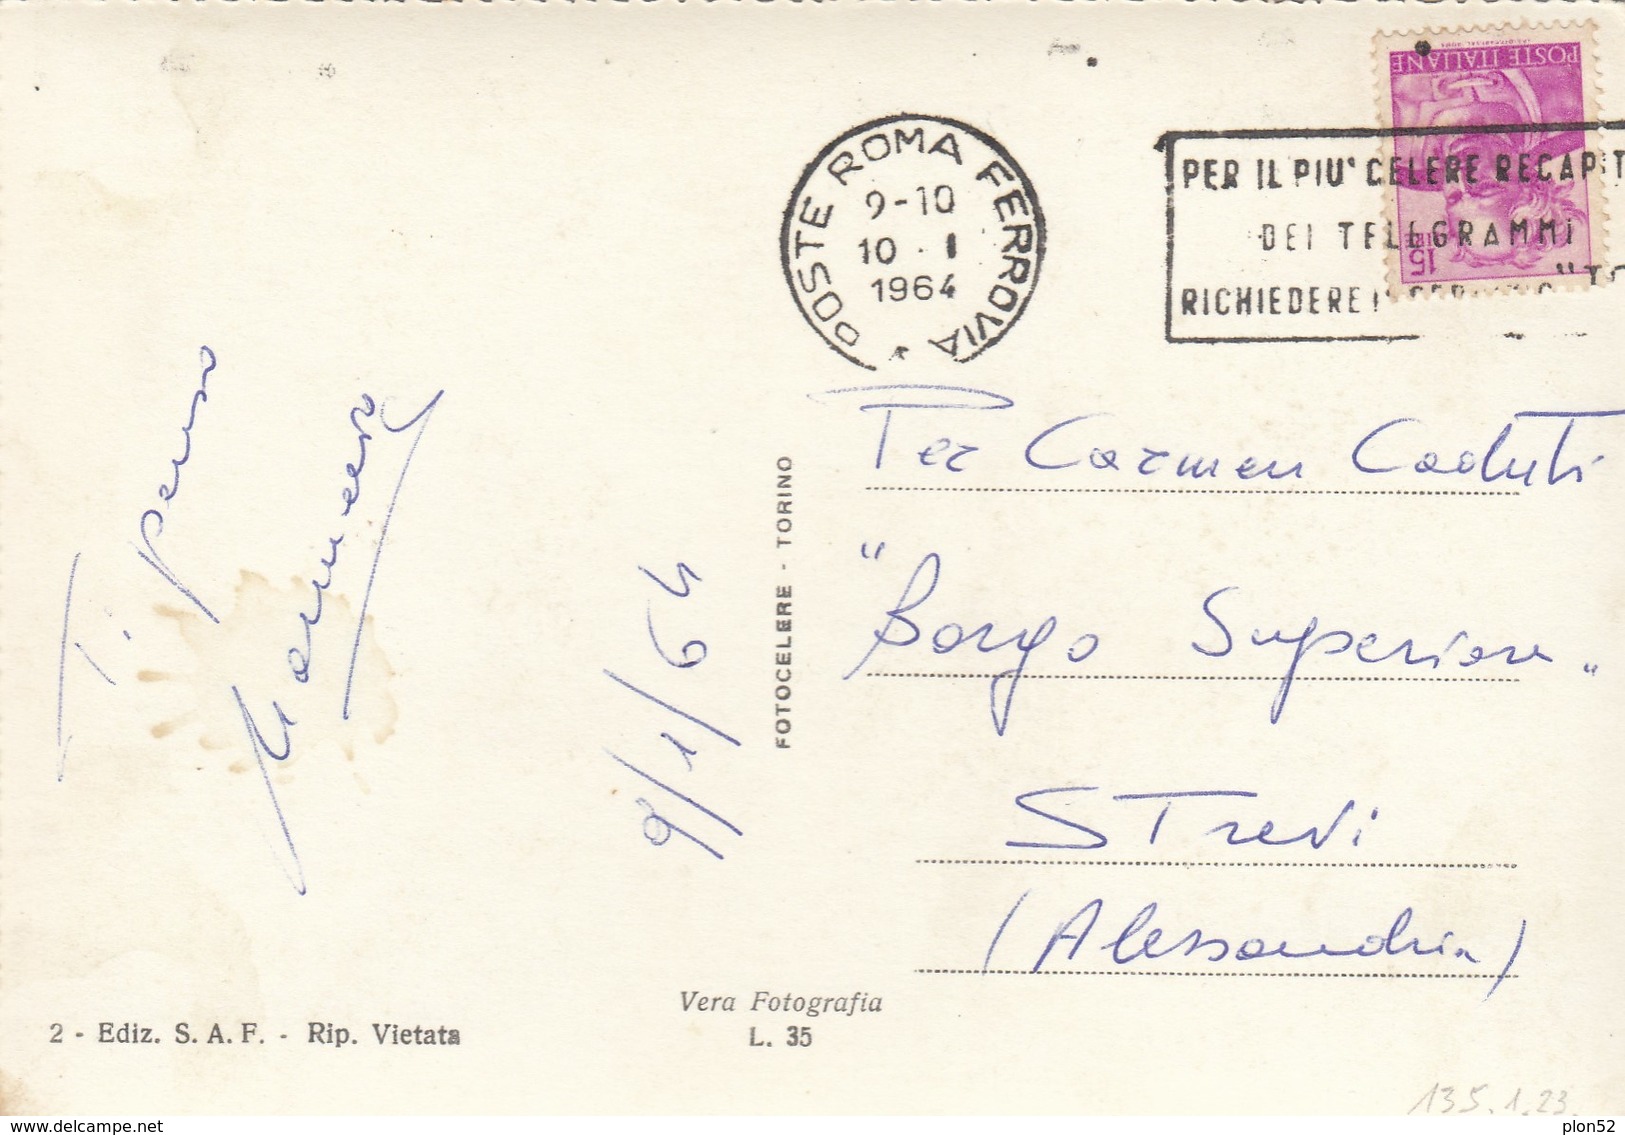 POSTE ITALIANE
LIRE 15
POSTE ROMA FERROVIA
9-10
10 · 1
1964
PER IL PIU' CELERE RECAPIT
DEI TELEGRAMMI
RICHIEDERE
Ti penso
9/1/64
FOTOCELERE - TORINO
Per Carmen Caduti
"Borgo Superiore"
STrevi
(Alessandria)
2 - Ediz. S. A. F. - Rip. Vietata
Vera Fotografia
L. 35
135.1.23.
delcampe.net
plon52